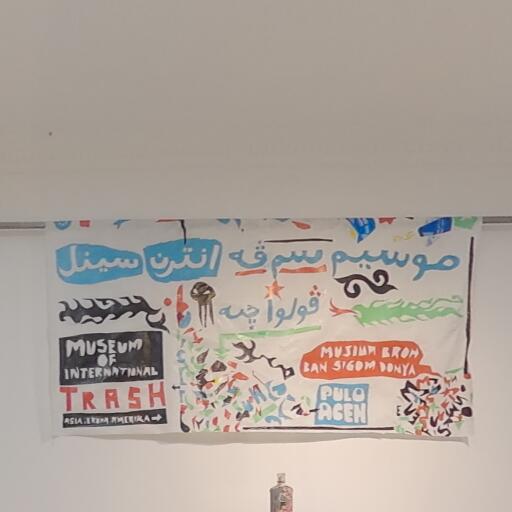 موسيم سمڤه انترن سينل
ڤولوا چيه
MUSEUM
OF
INTERNATIONAL
TRASH
ASIA.EROPA.AMERIKA →
MUSIUM BROH
BAN SIGOM DONYA
PULO
ACEH